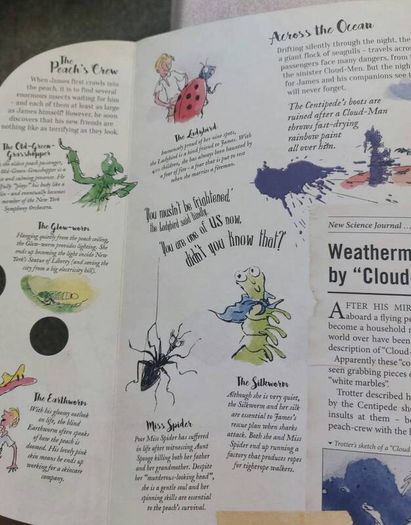 The
Peach's Crew
When James first crawls into
the peach, it is to find several
enormous insects waiting for him
- and each of them at least as large
as James himself! However, he soon
discovers that his new friends are
nothing like as terrifying as they look.
The Old-Green-
Grasshopper
the oldest passenger,
Old-Green-Grasshopper is a
musician. He
"plays" his body like a
- and eventually becomes
member of the New York
Symphony Orchestra.
The Glow-worm
Hanging quietly from the peach ceiling,
the Glow-worm provides lighting. She
ends up becoming the light inside New
York's Statue of Liberty (and saving the
city from a big electricity bill).
The Earthworm
With his gloomy outlook
on life, the blind
Earthworm often speaks
of how the peach is
doomed. His lovely pink
skin means he ends up
working for a skincare
company.
The Ladybird
Immensely proud of her nine spots,
the Ladybird is a loyal friend to James. With
no children, she has always been haunted by
a fear of fire - a fear that is put to rest
when she marries a fireman.
'You mustn't be frightened,'
the Ladybird said kindly.
'You are one of US now,
didn't you know that?'
Miss Spider
Poor Miss Spider has suffered
in life after witnessing Aunt
Sponge killing both her father
and her grandmother. Despite
her "murderous-looking head",
she is a gentle soul and her
spinning skills are essential
to the peach's survival.
The Silkworm
Although she is very quiet,
the Silkworm and her silk
are essential to James's
rescue plan when sharks
attack. Both she and Miss
Spider end up running a
factory that produces ropes
for tightrope walkers.
Across the Ocean
Drifting silently through the night, the
a giant flock of seagulls - travels acro
passengers face many dangers, from
the sinister Cloud-Men. But the nigh
for James and his companions see t
will never forget.
The Centipede's boots are
ruined after a Cloud-Man
throws fast-drying
rainbow paint
all over him.
New Science Journal ...
Weatherm
by "Cloud
AFTER HIS MIR
aboard a flying pe
become a household n
world over have been
description of "Cloud-
Apparently these "c
seen grabbing pieces
"white marbles".
Trotter described h
by the Centipede sh
insults at them – b
peach-crew with the
Trotter's sketch of a "Cloud